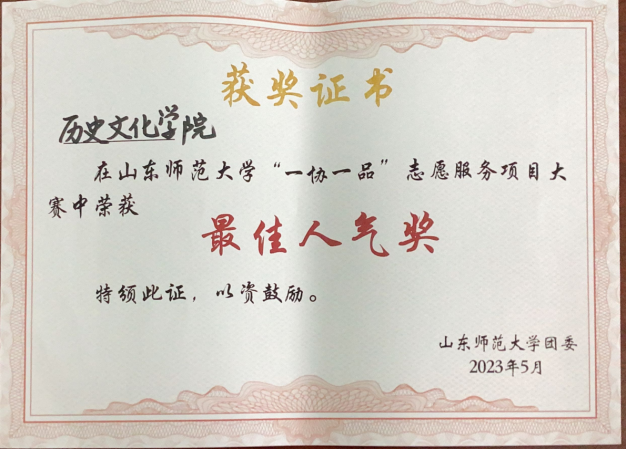 获奖证书
历史文化学院
在山东师范大学“一协一品”志愿服务项目大
赛中荣获
最佳人气奖
特颁此证，以资鼓励。
山东师范大学团委
2023年5月